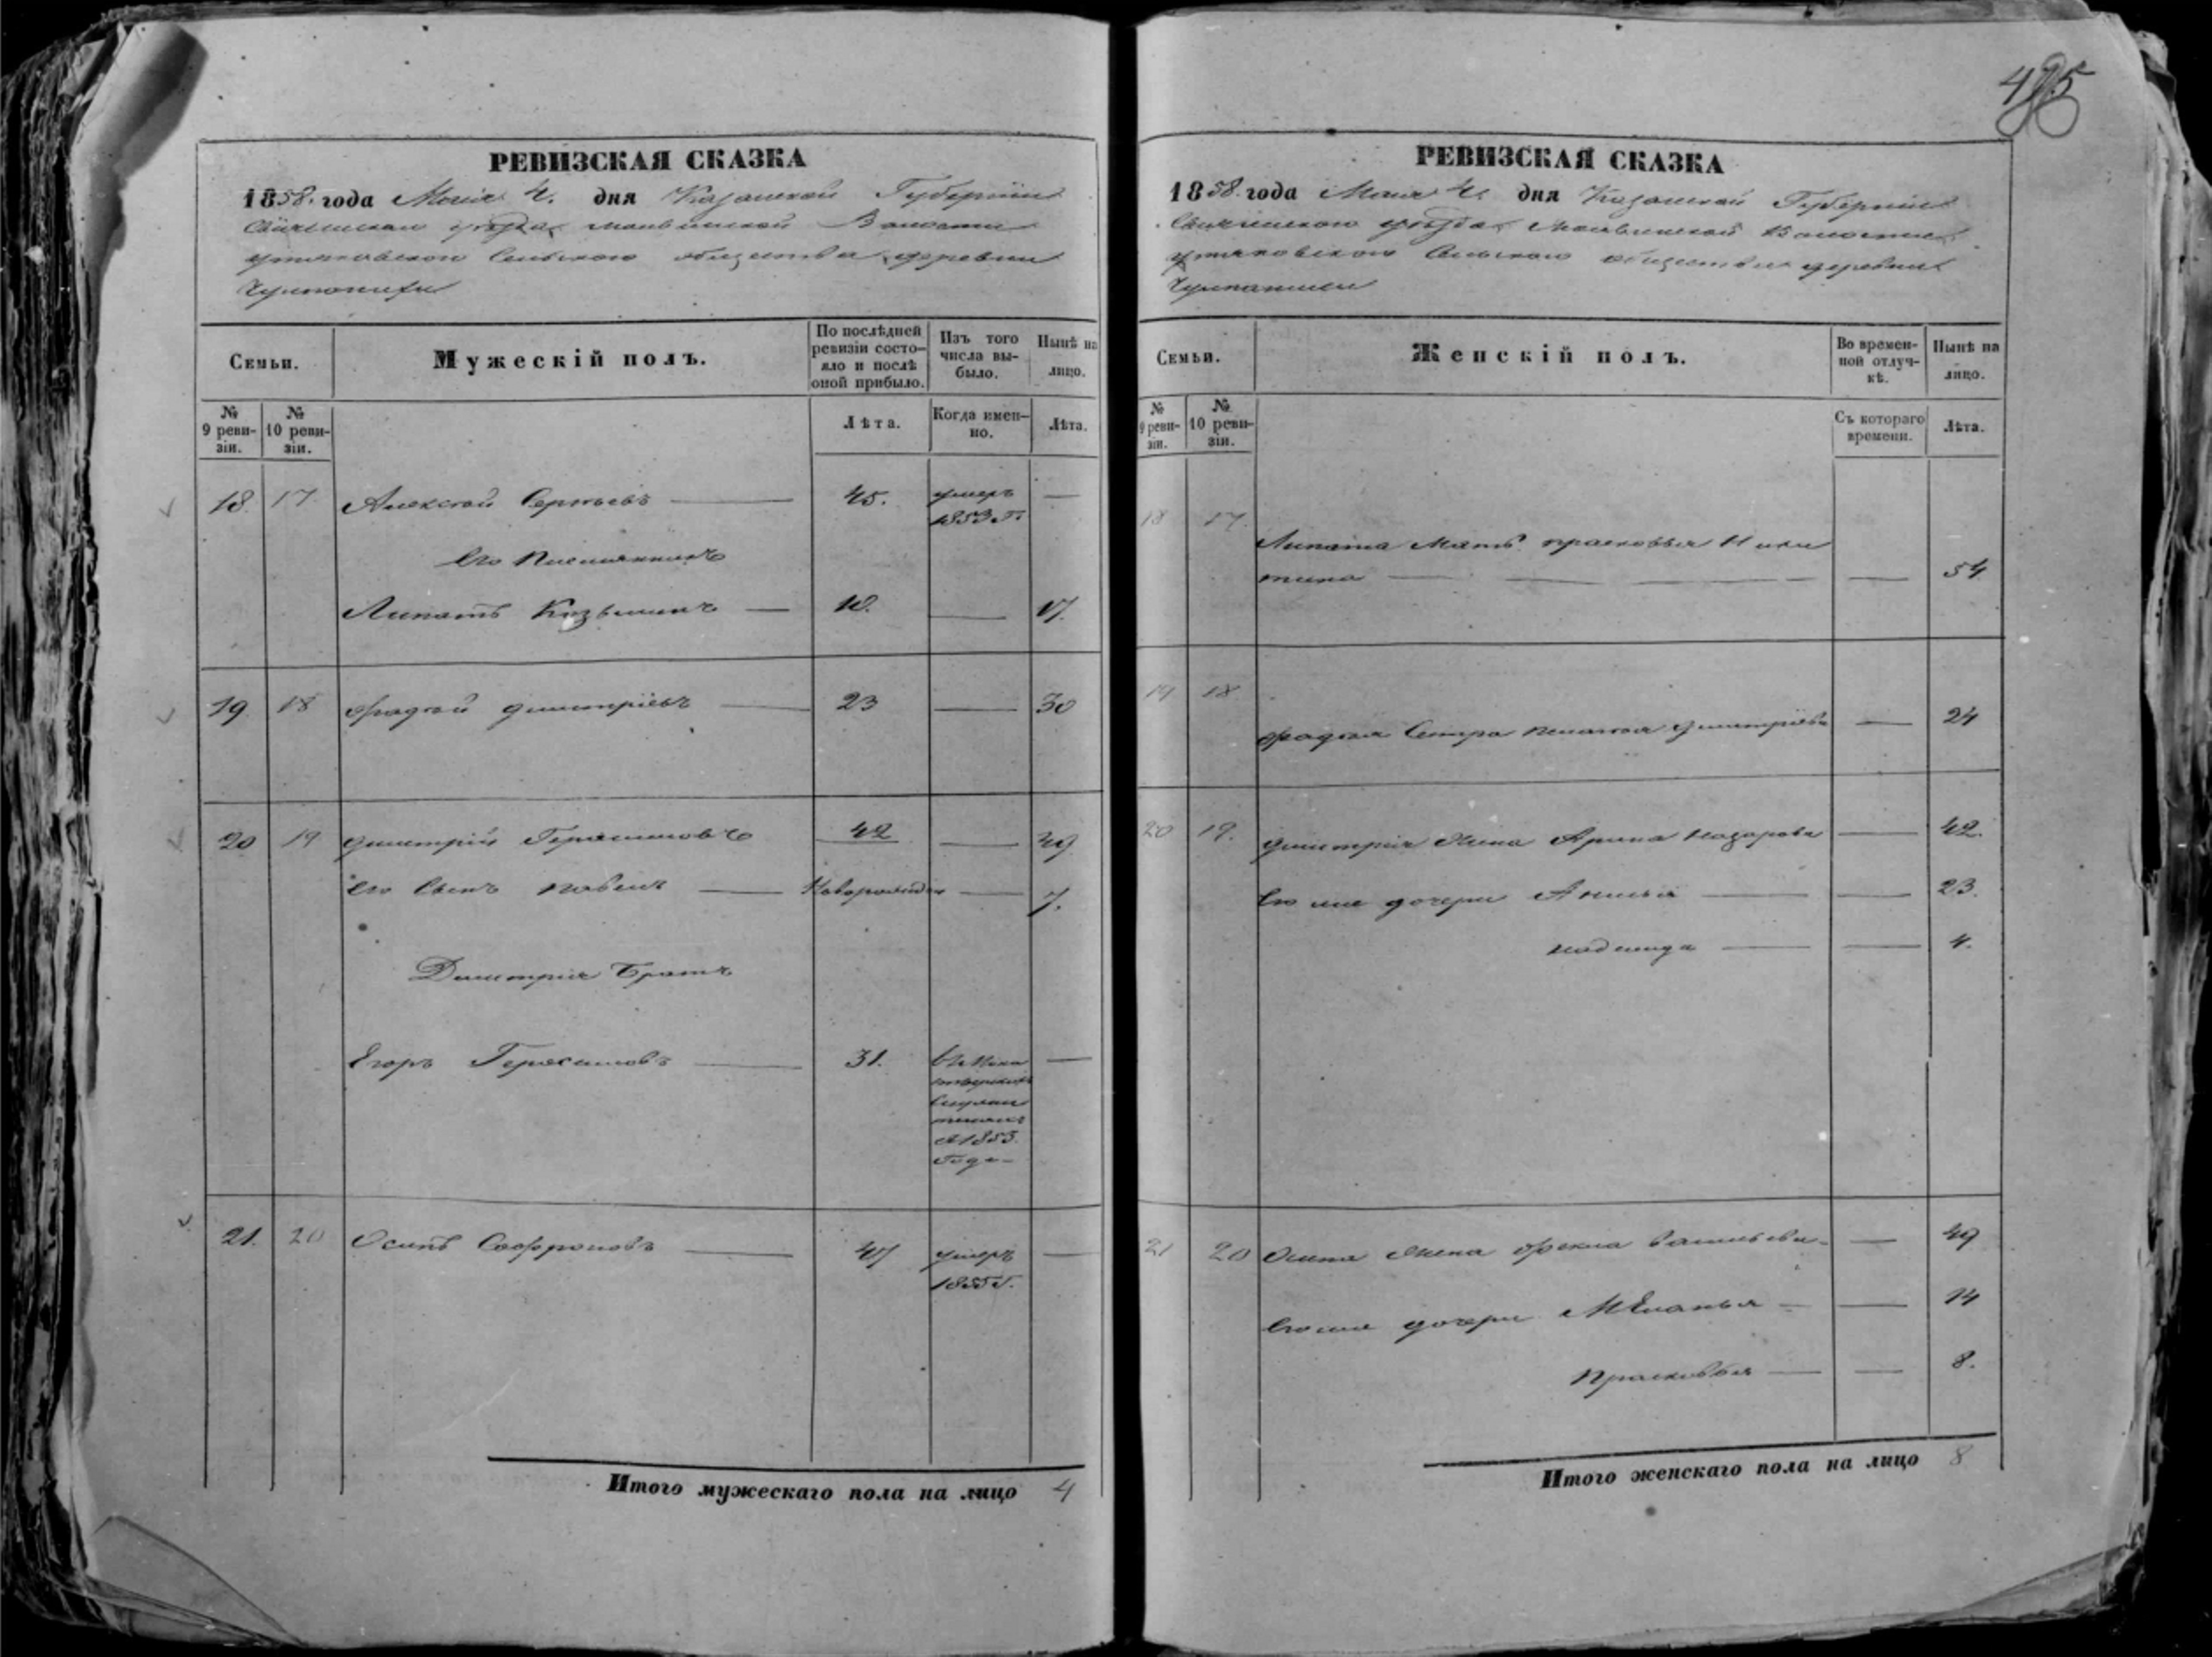 485
РЕВИЗСКАЯ СКАЗКА
1858. года Маія 4. дня Казанской Губерніи
уѣзда Волости
Сельскаго общества деревни
Семьи.
Мужескій полъ.
По послѣдней ревизіи состояло и послѣ оной прибыло.
Изъ того числа выбыло.
Нынѣ на лицо.
№ 9 ревизіи.
№ 10 ревизіи.
Лѣта.
Когда именно.
Лѣта.
18. 17. Алексѣй Сергѣевъ — 45. умеръ 1853 г. —
Его племянникъ
Липатъ Козьминъ — 10. — 17.
19. 18 Фадѣй Димитріевъ — 23 — 30
20 19 Димитрій Герасимовъ 42 — 49
Его сынъ Павелъ — Новорожден — 7.
Димитрія Братъ
Егоръ Герасимовъ — 31. —
1853
года
21. 20 Осипъ Софроновъ — 47 умеръ 1855 г. —
Итого мужескаго пола на лицо 4
РЕВИЗСКАЯ СКАЗКА
1858. года Маія 4. дня Казанской Губерніи
уѣзда Волости
Сельскаго общества деревни
Семьи.
Женскій полъ.
Во временной отлучкѣ.
Нынѣ на лицо.
№ 9 ревизіи.
№ 10 ревизіи.
Съ котораго времени.
Лѣта.
18 17. Липата Мать Прасковья Ники
тина — — 54.
19 18 Фадѣя Сестра Пелагея Димитріева — 24
20 19. Димитрія Жена Арина Назарова — 42.
дочери Анисья — — 23.
Надежда — — 4.
21 20 Осипа Жена Фекла Васильева — 49
дочери Меланья — — 14
Прасковья — — 8.
Итого женскаго пола на лицо 8